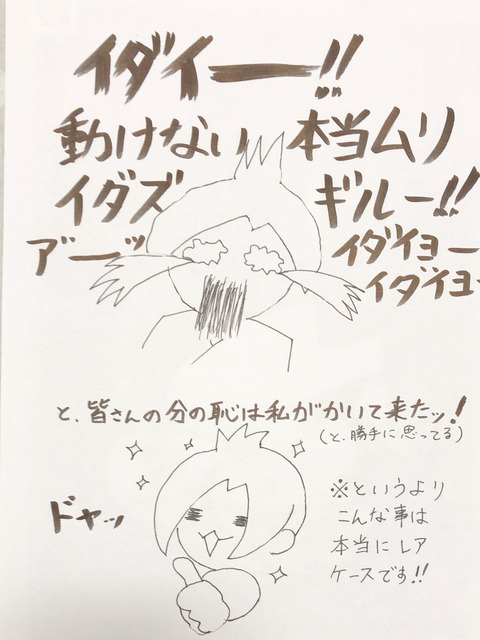 イダイー!!
動けない 本当ムリ
イダズギルー!!
ア゛ーッ イダイヨー
イダイヨー
と、皆さんの分の恥は私がかいて来たッ!
(と、勝手に思ってる)
ドヤッ
※というより
こんな事は
本当にレア
ケースです!!